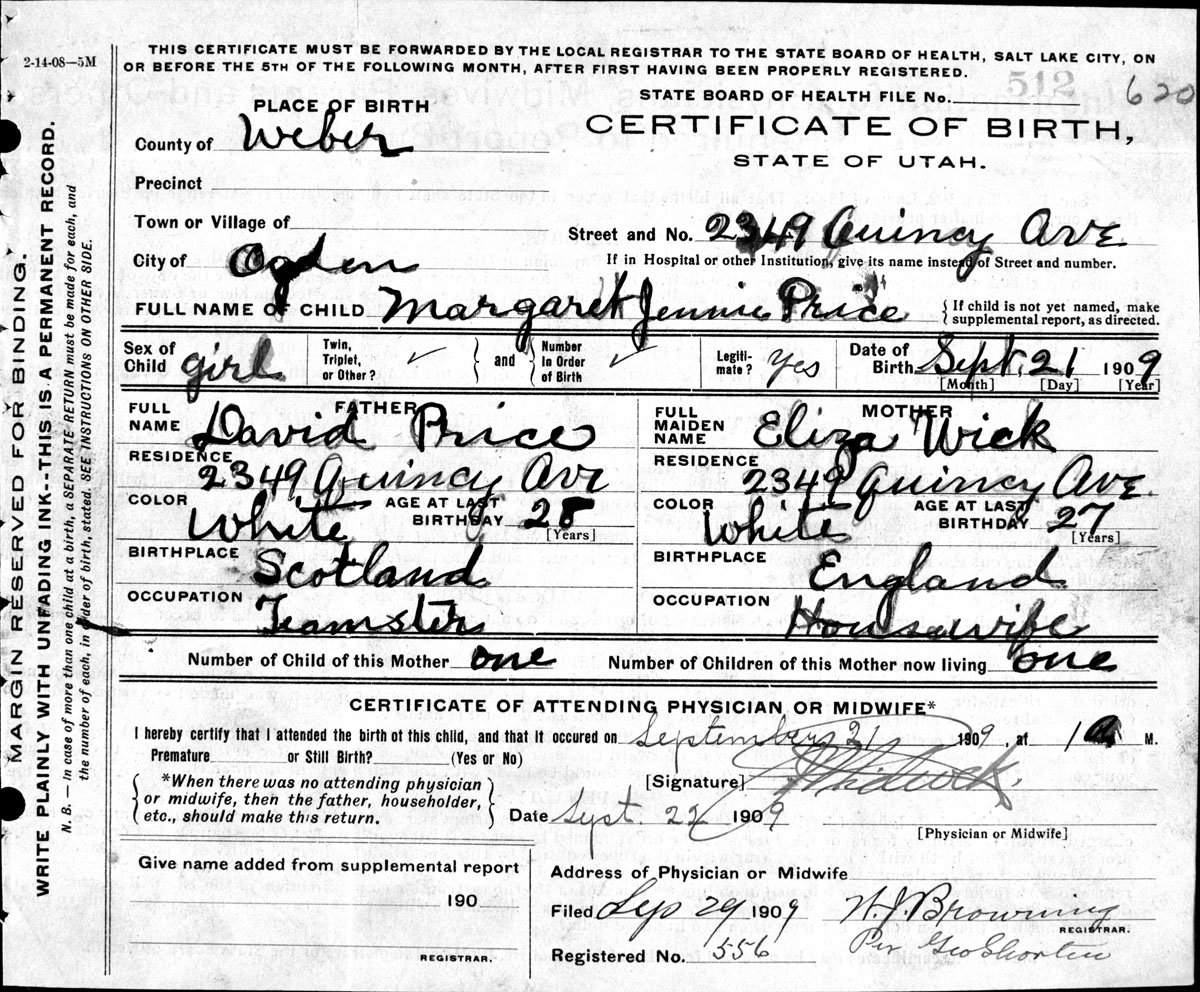 2-14-08—5M
THIS CERTIFICATE MUST BE FORWARDED BY THE LOCAL REGISTRAR TO THE STATE BOARD OF HEALTH, SALT LAKE CITY, ON
OR BEFORE THE 5TH OF THE FOLLOWING MONTH, AFTER FIRST HAVING BEEN PROPERLY REGISTERED.
STATE BOARD OF HEALTH FILE No. 512 620
PLACE OF BIRTH
CERTIFICATE OF BIRTH,
STATE OF UTAH.
County of Weber
Precinct
Town or Village of
Street and No. 2349 Quincy Ave.
City of Ogden
If in Hospital or other Institution, give its name instead of Street and number.
FULL NAME OF CHILD Margaret Jennie Price
{If child is not yet named, make
supplemental report, as directed.
Sex of Child girl
Twin, Triplet, or Other? ✓ } and { Number in Order of Birth ✓
Legitimate? Yes
Date of Birth Sept. 21 1909
[Month] [Day] [Year]
FATHER
FULL NAME David Price
RESIDENCE 2349 Quincy Ave
COLOR White AGE AT LAST BIRTHDAY 28 [Years]
BIRTHPLACE Scotland
OCCUPATION Teamster
MOTHER
FULL MAIDEN NAME Eliza Wick
RESIDENCE 2349 Quincy Ave.
COLOR White AGE AT LAST BIRTHDAY 27 [Years]
BIRTHPLACE England
OCCUPATION Housewife
Number of Child of this Mother one Number of Children of this Mother now living one
CERTIFICATE OF ATTENDING PHYSICIAN OR MIDWIFE*
I hereby certify that I attended the birth of this child, and that it occured on September 21 1909, at 1 M.
Premature or Still Birth? (Yes or No)
{*When there was no attending physician
or midwife, then the father, householder,
etc., should make this return.}
[Signature]
Date Sept. 22 1909
[Physician or Midwife]
Give name added from supplemental report
190
REGISTRAR.
Address of Physician or Midwife
Filed Sep 29 1909 H. J. Browning
REGISTRAR.
Per Geo Shorten
Registered No. 556
MARGIN RESERVED FOR BINDING.
WRITE PLAINLY WITH UNFADING INK--THIS IS A PERMANENT RECORD.
N. B. — In case of more than one child at a birth, a SEPARATE RETURN must be made for each, and
the number of each, in order of birth, stated. SEE INSTRUCTIONS ON OTHER SIDE.